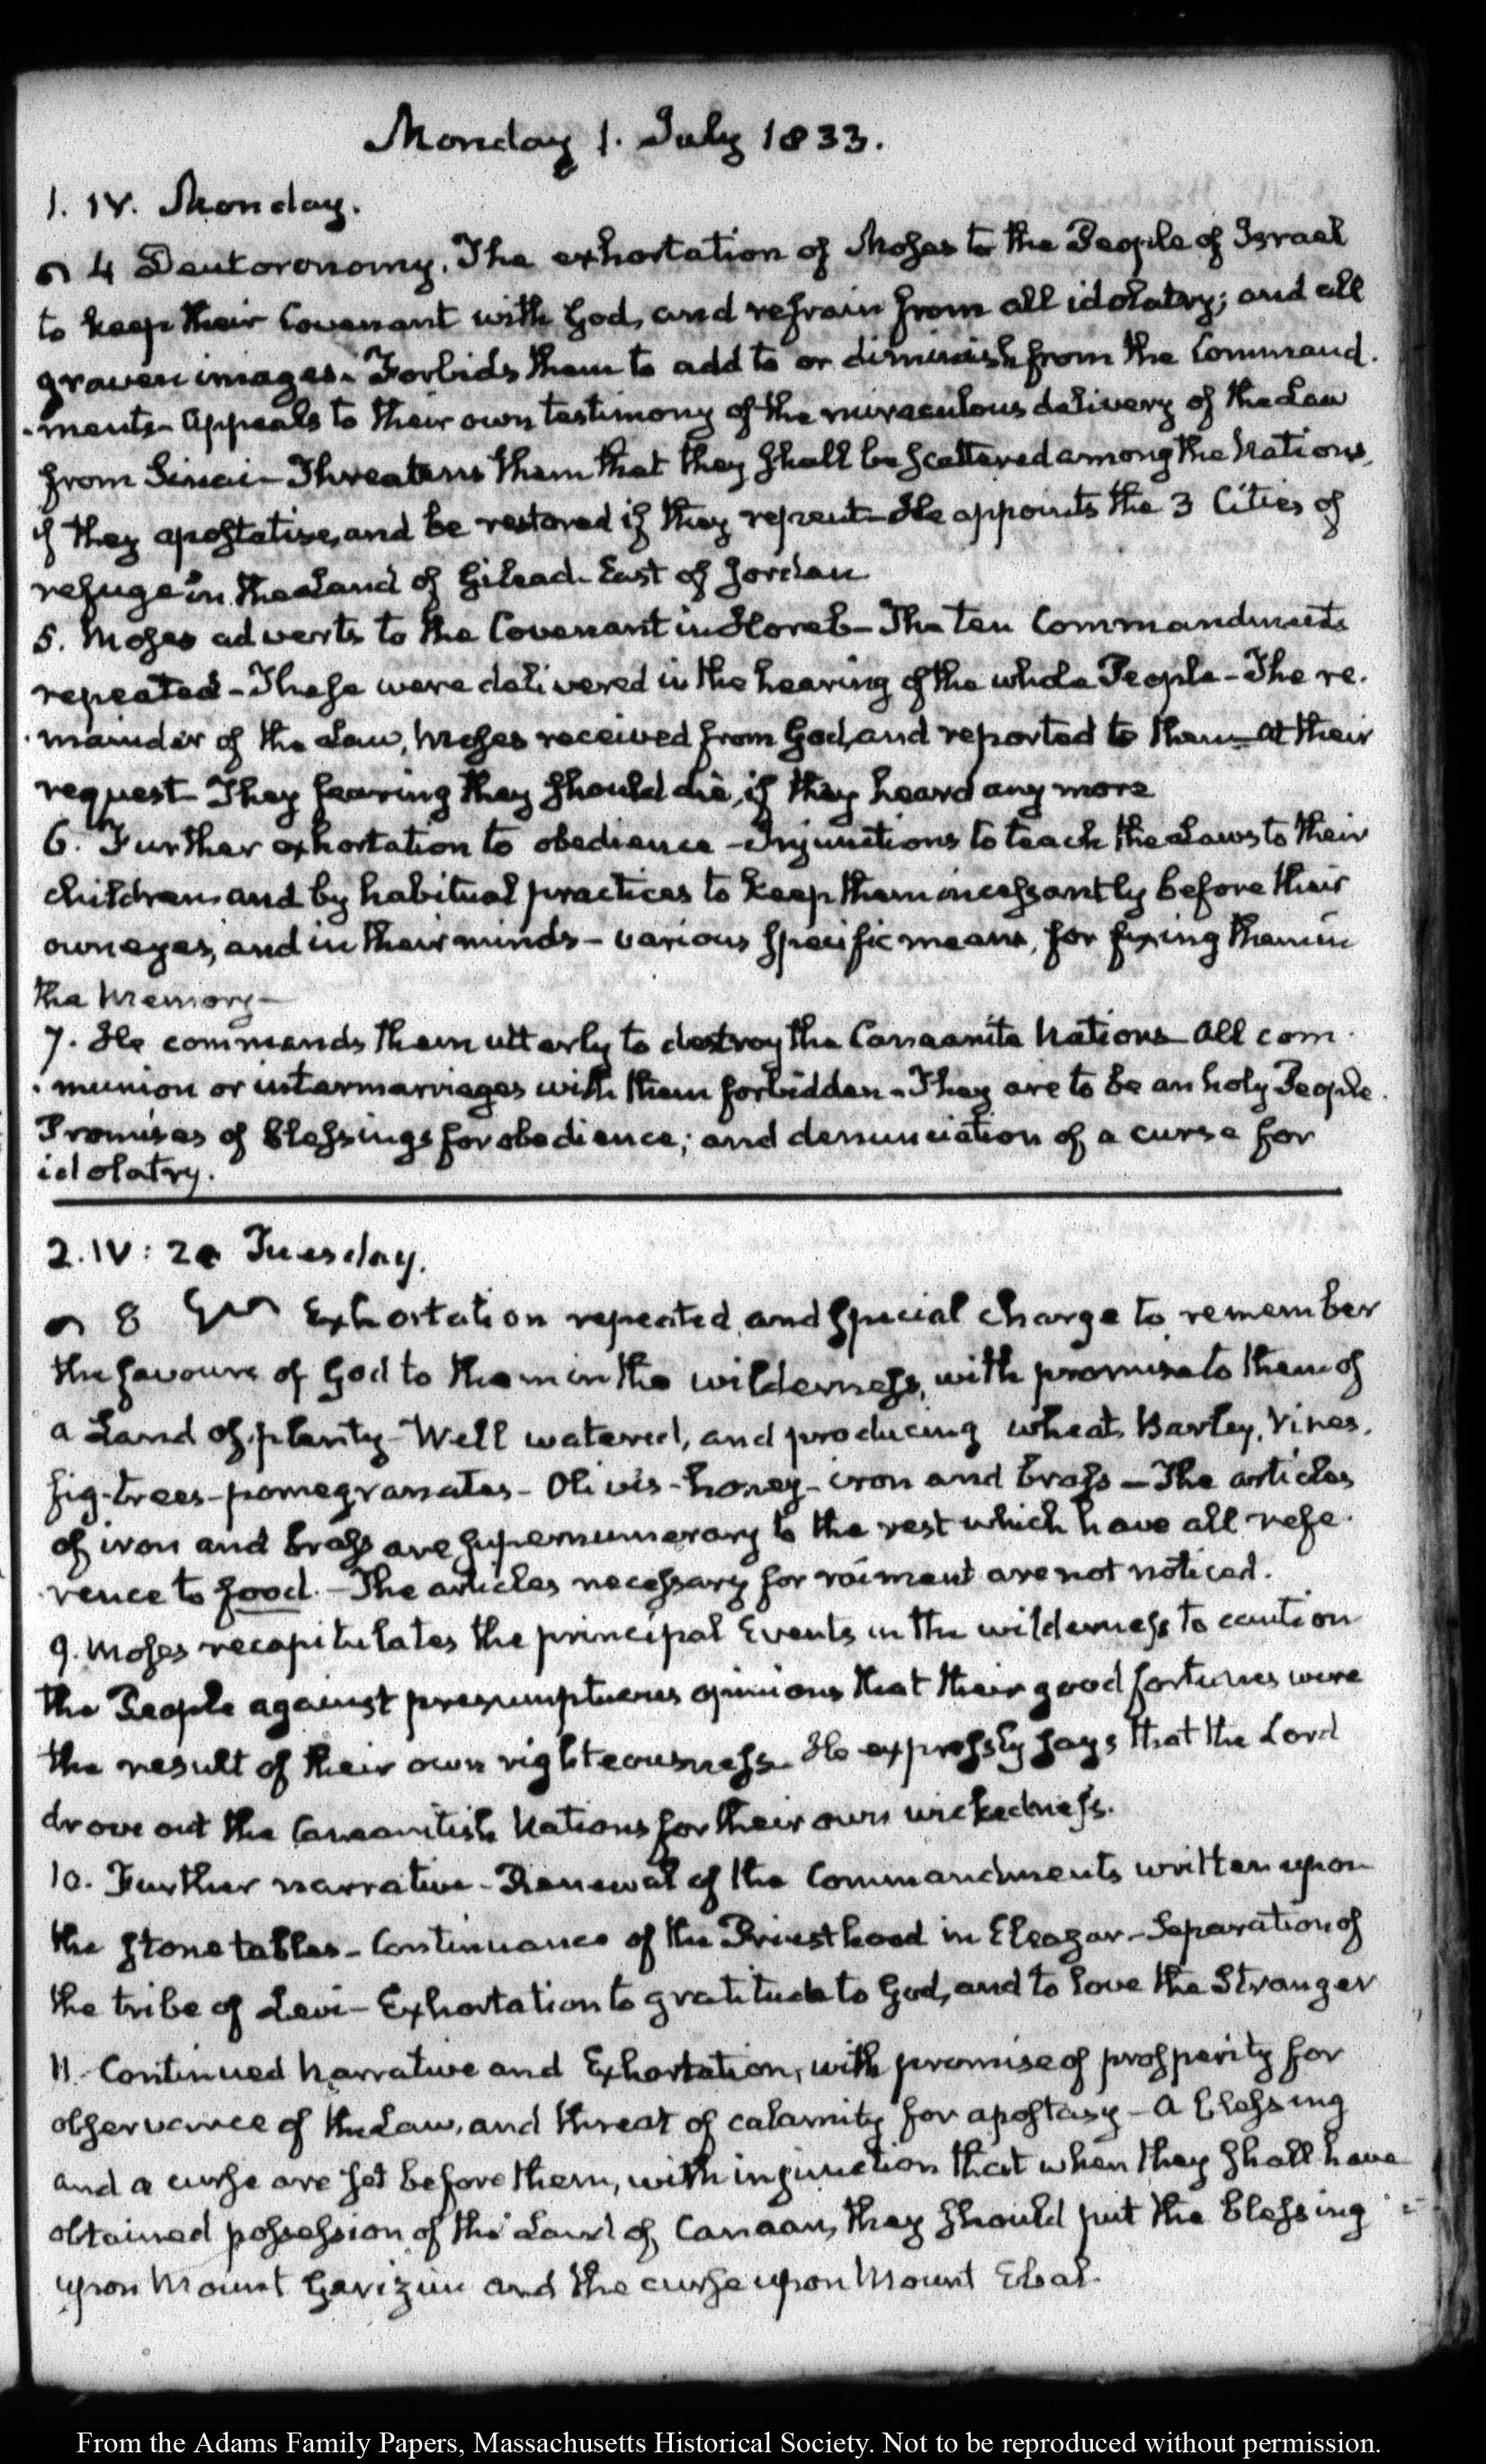 Monday 1. July 1833.
1. IV. Monday.
4 Deutoronomy. The exhortation of Moses to the People of Israel
to keep their Covenant with God, and refrain from all idolatry; and all
graven images. Forbids them to add to or diminish from the Command-
-ments- Appeals to their own testimony of the miraculous delivery of the Law
from Sinai- Threatens them that they shall be scattered among the Nations,
if they apostatise, and be restored if they repent- He appoints the 3 Cities of
refuge in the Land of Gilead- East of Jordan
5. Moses adverts to the Covenant in Horeb- The ten Commandments
repeated- These were delivered in the hearing of the whole People- The re-
-mainder of the Law, Moses received from God, and reported to them- at their
request- They fearing they should die, if they heard any more
6. Further exhortation to obedience- Injunctions to teach the Laws to their
children, and by habitual practices to keep them incessantly before their
own eyes, and in their minds- various specific means, for fixing them in
the Memory-
7. He commands them utterly to destroy the Canaanite Nations- All com-
-munion or intermarriages with them forbidden- They are to be an holy People.
Promises of blessings for obedience; and denunciation of a curse for
idolatry.
2. IV: Tuesday.
8 Exhortation repeated, and special charge to remember
the favours of God to them in the wilderness, with promise to them of
a Land of plenty- Well watered, and producing wheat, Barley, Vines,
fig-trees- pomegranates- Olives- honey- iron and brass- The articles
of iron and brass are supernumerary to the rest which have all refe-
-rence to food.- The articles necessary for raiment are not noticed.
9. Moses recapitulates the principal Events in the wilderness to caution
the People against presumptuous opinions that their good fortunes were
the result of their own righteousness- He expressly says that the Lord
drove out the Canaanitish Nations for their own wickedness.
10. Further narrative- Renewal of the Commandments written upon
the stone tables- Continuance of the Priesthood in Eleazar- Separation of
the tribe of Levi- Exhortation to gratitude to God, and to love the Stranger
11. Continued Narrative and Exhortation, with promise of prosperity for
observance of the Law, and threat of calamity for apostasy- A blessing
and a curse are set before them, with injunction that when they shall have
obtained possession of the Land of Canaan, they should put the blessing
upon Mount Garizim and the curse upon Mount Ebal.
From the Adams Family Papers, Massachusetts Historical Society. Not to be reproduced without permission.